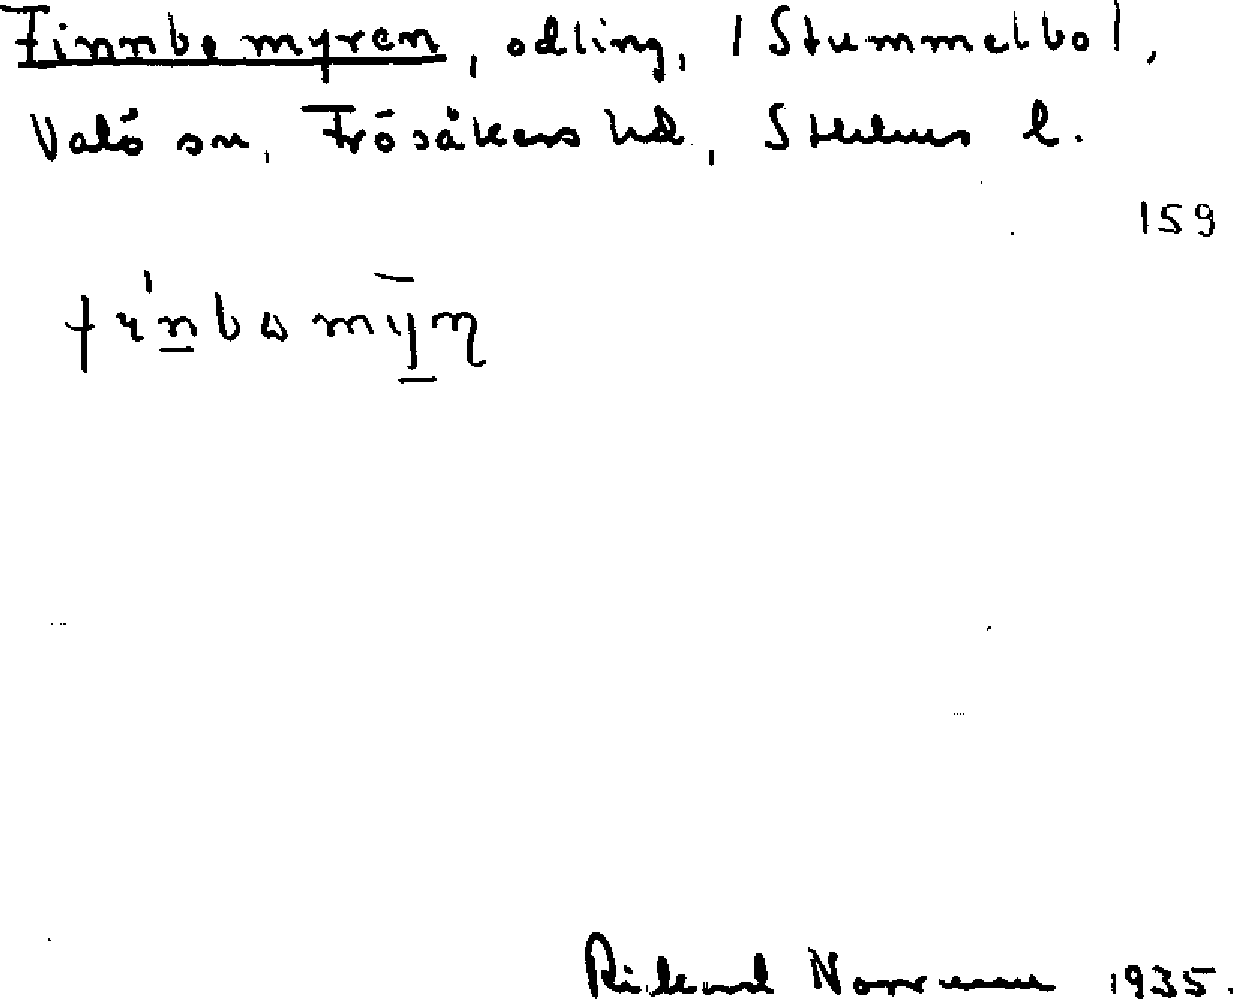 Finnbomyren, odling, /Stummelbo/,
Valö sn, Frösåkers hd, Sthlms l.
159
Rickard Norrman 1935.